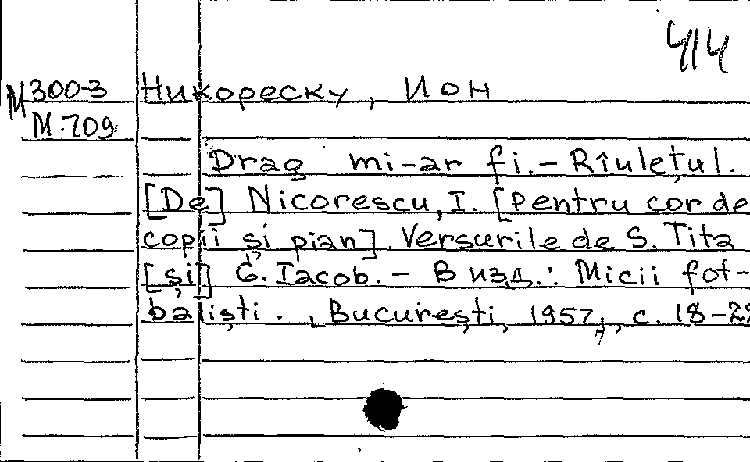 414
М300-3 Никореску, Ион
М.709
Drag mi-ar fi.-Rîulețul.
[De] Nicorescu, I. [Pentru cor de
copii și pian]. Versurile de S. Tita
[și] G. Iacob. - В изд.: Micii fot-
baliști. București, 1957, с. 18-22